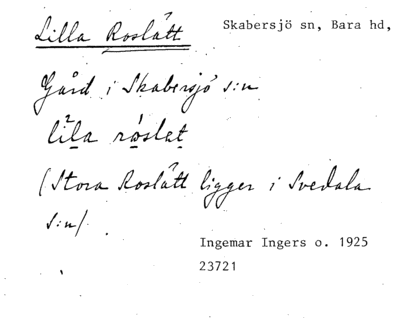 Lilla Roslätt
Skabersjö sn, Bara hd,
Gård i Skabersjö s:n
lila roslat
(Stora Roslätt ligger i Svedala
s:n/.
Ingemar Ingers o. 1925
23721